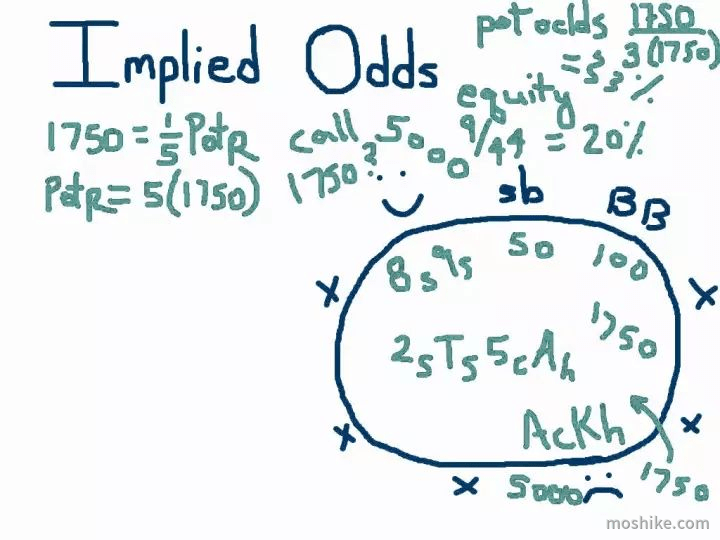 Implied Odds
pot odds 1750
= 33% 3(1750)
equity
9/44 = 20%
1750 = 1/5 PotR
PotR = 5(1750)
call 5000
1750?
sb BB
8s 9s 50 100
1750
2s Ts 5c Ah
Ac Kh
5000 1750
moshike.com